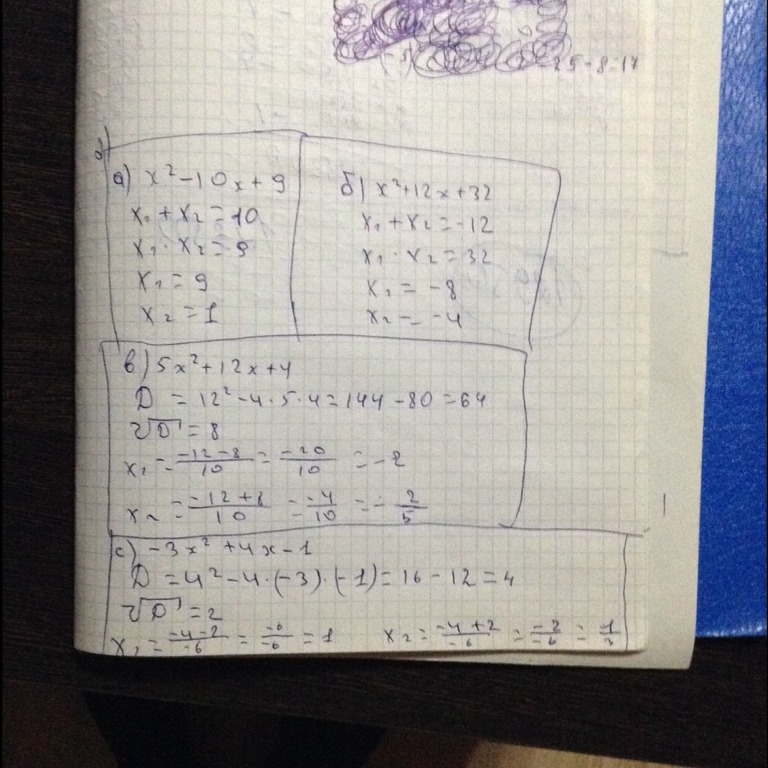 25-8=17
а) x²-10x+9
x₁+x₂=10
x₁·x₂=9
x₁=9
x₂=1
б) x²+12x+32
x₁+x₂=-12
x₁·x₂=32
x₁=-8
x₂=-4
в) 5x²+12x+4
D=12²-4·5·4=144-80=64
√D=8
x₁=(-12-8)/10=-20/10=-2
x₂=(-12+8)/10=-4/10=-2/5
с) -3x²+4x-1
D=4²-4·(-3)·(-1)=16-12=4
√D=2
x₁=(-4-2)/-6=-6/-6=1 x₂=(-4+2)/-6=-2/-6=1/3